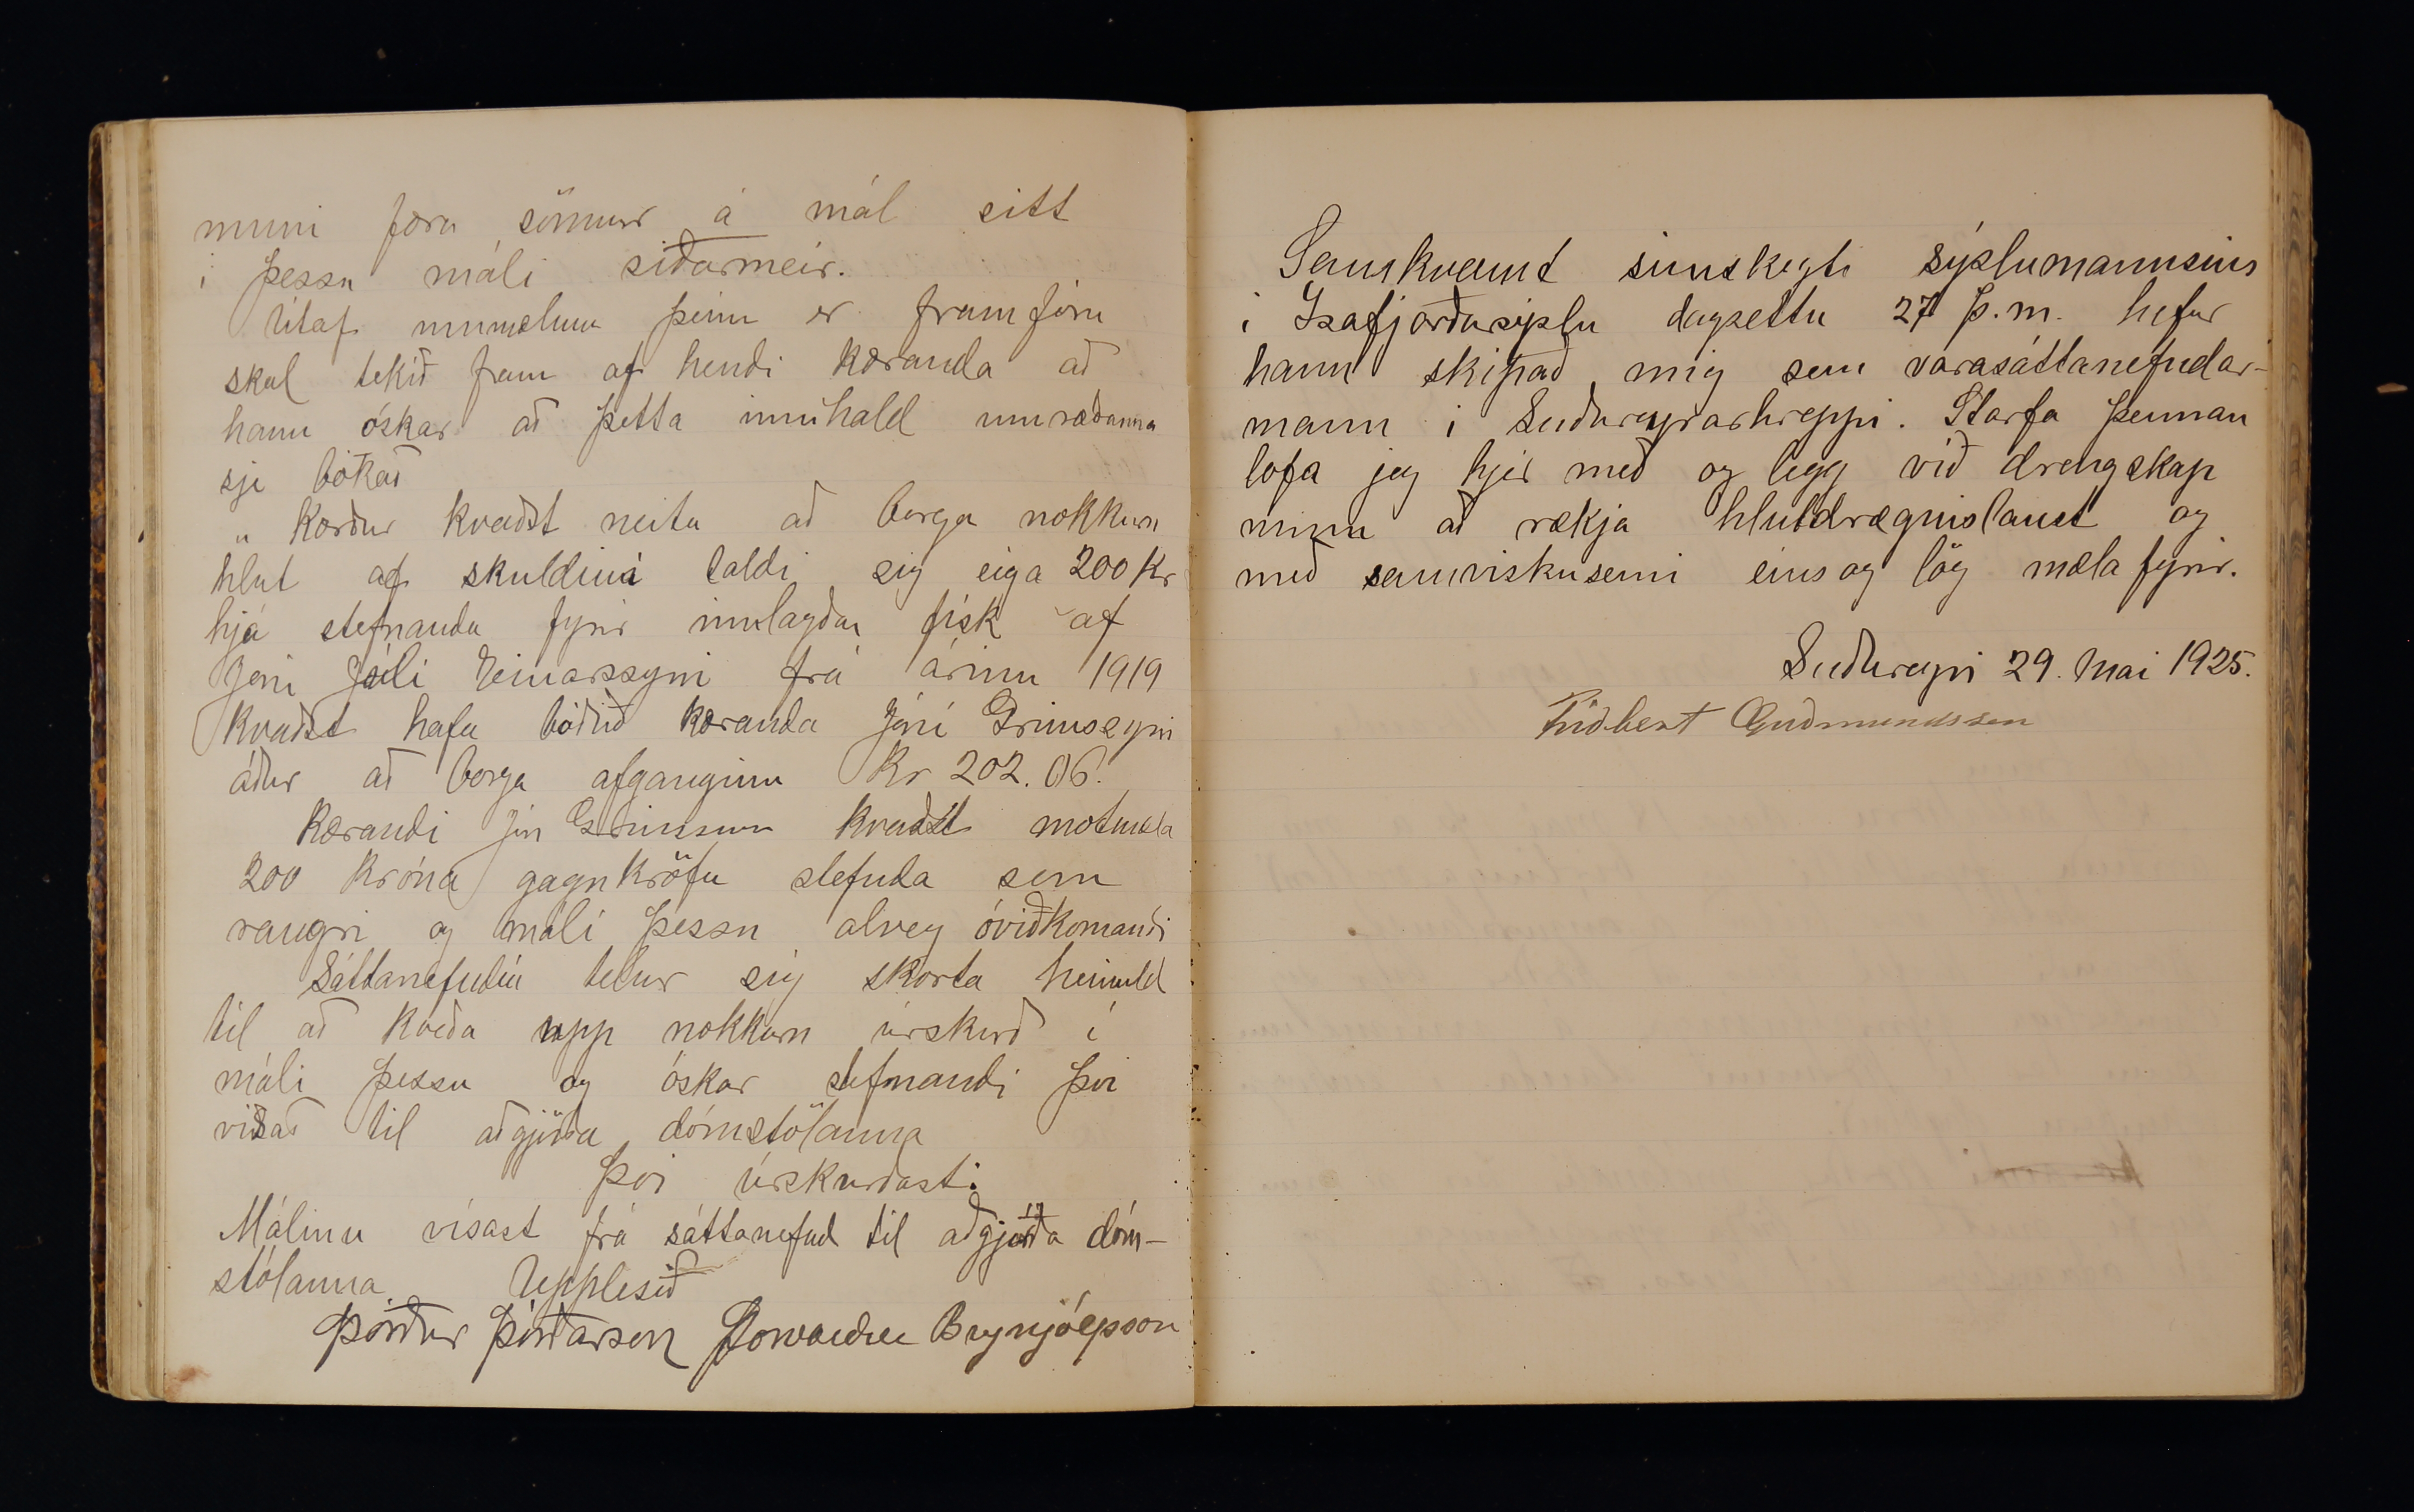 muni færa sönnur á mál sitt
i þessu máli síðarmeir.
Útaf ummælum þeim er fram fóru
skal tekið fram af hendi kæranda að
hann óskar að þetta innihald umræðanna
sje bókað
„ Kærður kvaðst neita að borga nokkurn
hlut af skuldinni taldi sig eiga 200 kr
hjá stefnanda fyrir innlagðan fisk af
Jóni Júlí Einarssyni frá árinu 1919
kvaðst hafa boðið kæranda Jóni Grimssyni
áður að borga afganginn Kr 202.06.
Kærandi Jón Grimsson kvaðst motmæla
200 króna gagnkröfu stefnda sem
rangri og máli þessu alveg óviðkomandi
Sáttanefndin telur sig skorta heimild
til að kveða upp nokkurn úrskurð í
máli þessu og óskar stefnandi því
vísað til aðgjörða dómstólanna
Því úrskurðast:
Málinu vísast frá sáttanefnd til aðgjörða dóm-
stólanna. Upplesið
Þórður Þórðarson Þorvaldur Brynjólfsson
Samkvæmt símskeyti sýslumannsins
i Isafjarðarsýslu dagsettu 27 þ.m. hefur
hann skipað mig sem varasáttanefndar-
mann i Suðureyrarhreppi. Starfa þennan
lofa jeg hjer með og legg við drengskap
minn að rækja hlutdrægnislaust og
með samviskusemi eins og lög mæla fyrir.
Suðureyri 29. Mai 1925.
Friðbert Guðmundsson